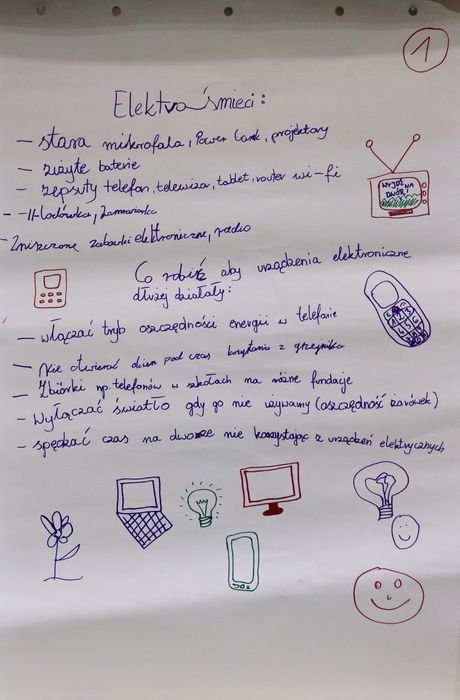 1
Elektro śmieci:
- stara mikrofala, Power bank, projektory
- zużyte baterie
- zepsuty telefon, telewizor, tablet, router wi-fi
- -II- lodówka, zamrażarka
- Zniszczone zabawki elektroniczne, radio
WYJDŹ NA
DWÓR!
Co robić aby urządzenia elektroniczne
dłużej działały:
- włączać tryb oszczędności energii w telefonie
- Nie otwierać okien pod czas korzystania z grzejnika
- Zbiórki np. telefonów w szkołach na różne fundacje
- Wyłączać światło gdy go nie używamy (oszczędność żarówek)
- spędzać czas na dworze nie korzystając z urządzeń elektrycznych